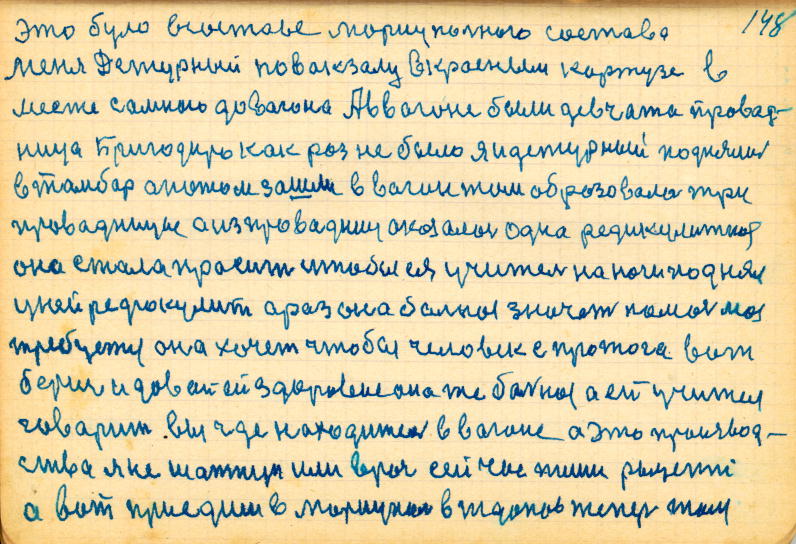 148
Это було всоставе мориупольного состава
меня Дежурный повокзалу вкрасным картузе в
месте самною довагона Аввагоне были девчата провад-
ница Бригодиро как роз не было яидежурный поднялись
втамбар апотом зашли в вагон там образовалось три
провадницы аизпровадниц оказалась одна редикулитная
она стала просить чтобы ея учител наноги поднял
уней редюкулит аразона болная значет помош моя
требуетца она хочет чтобы человек с протога вот
бери и довай ей здоровие она же болная а ей учител
говарит вы где находитес в вагоне а это производ-
ства яне или врач сейчас пиши рецепт
а вот приедим в мориупол в жданов тепер там